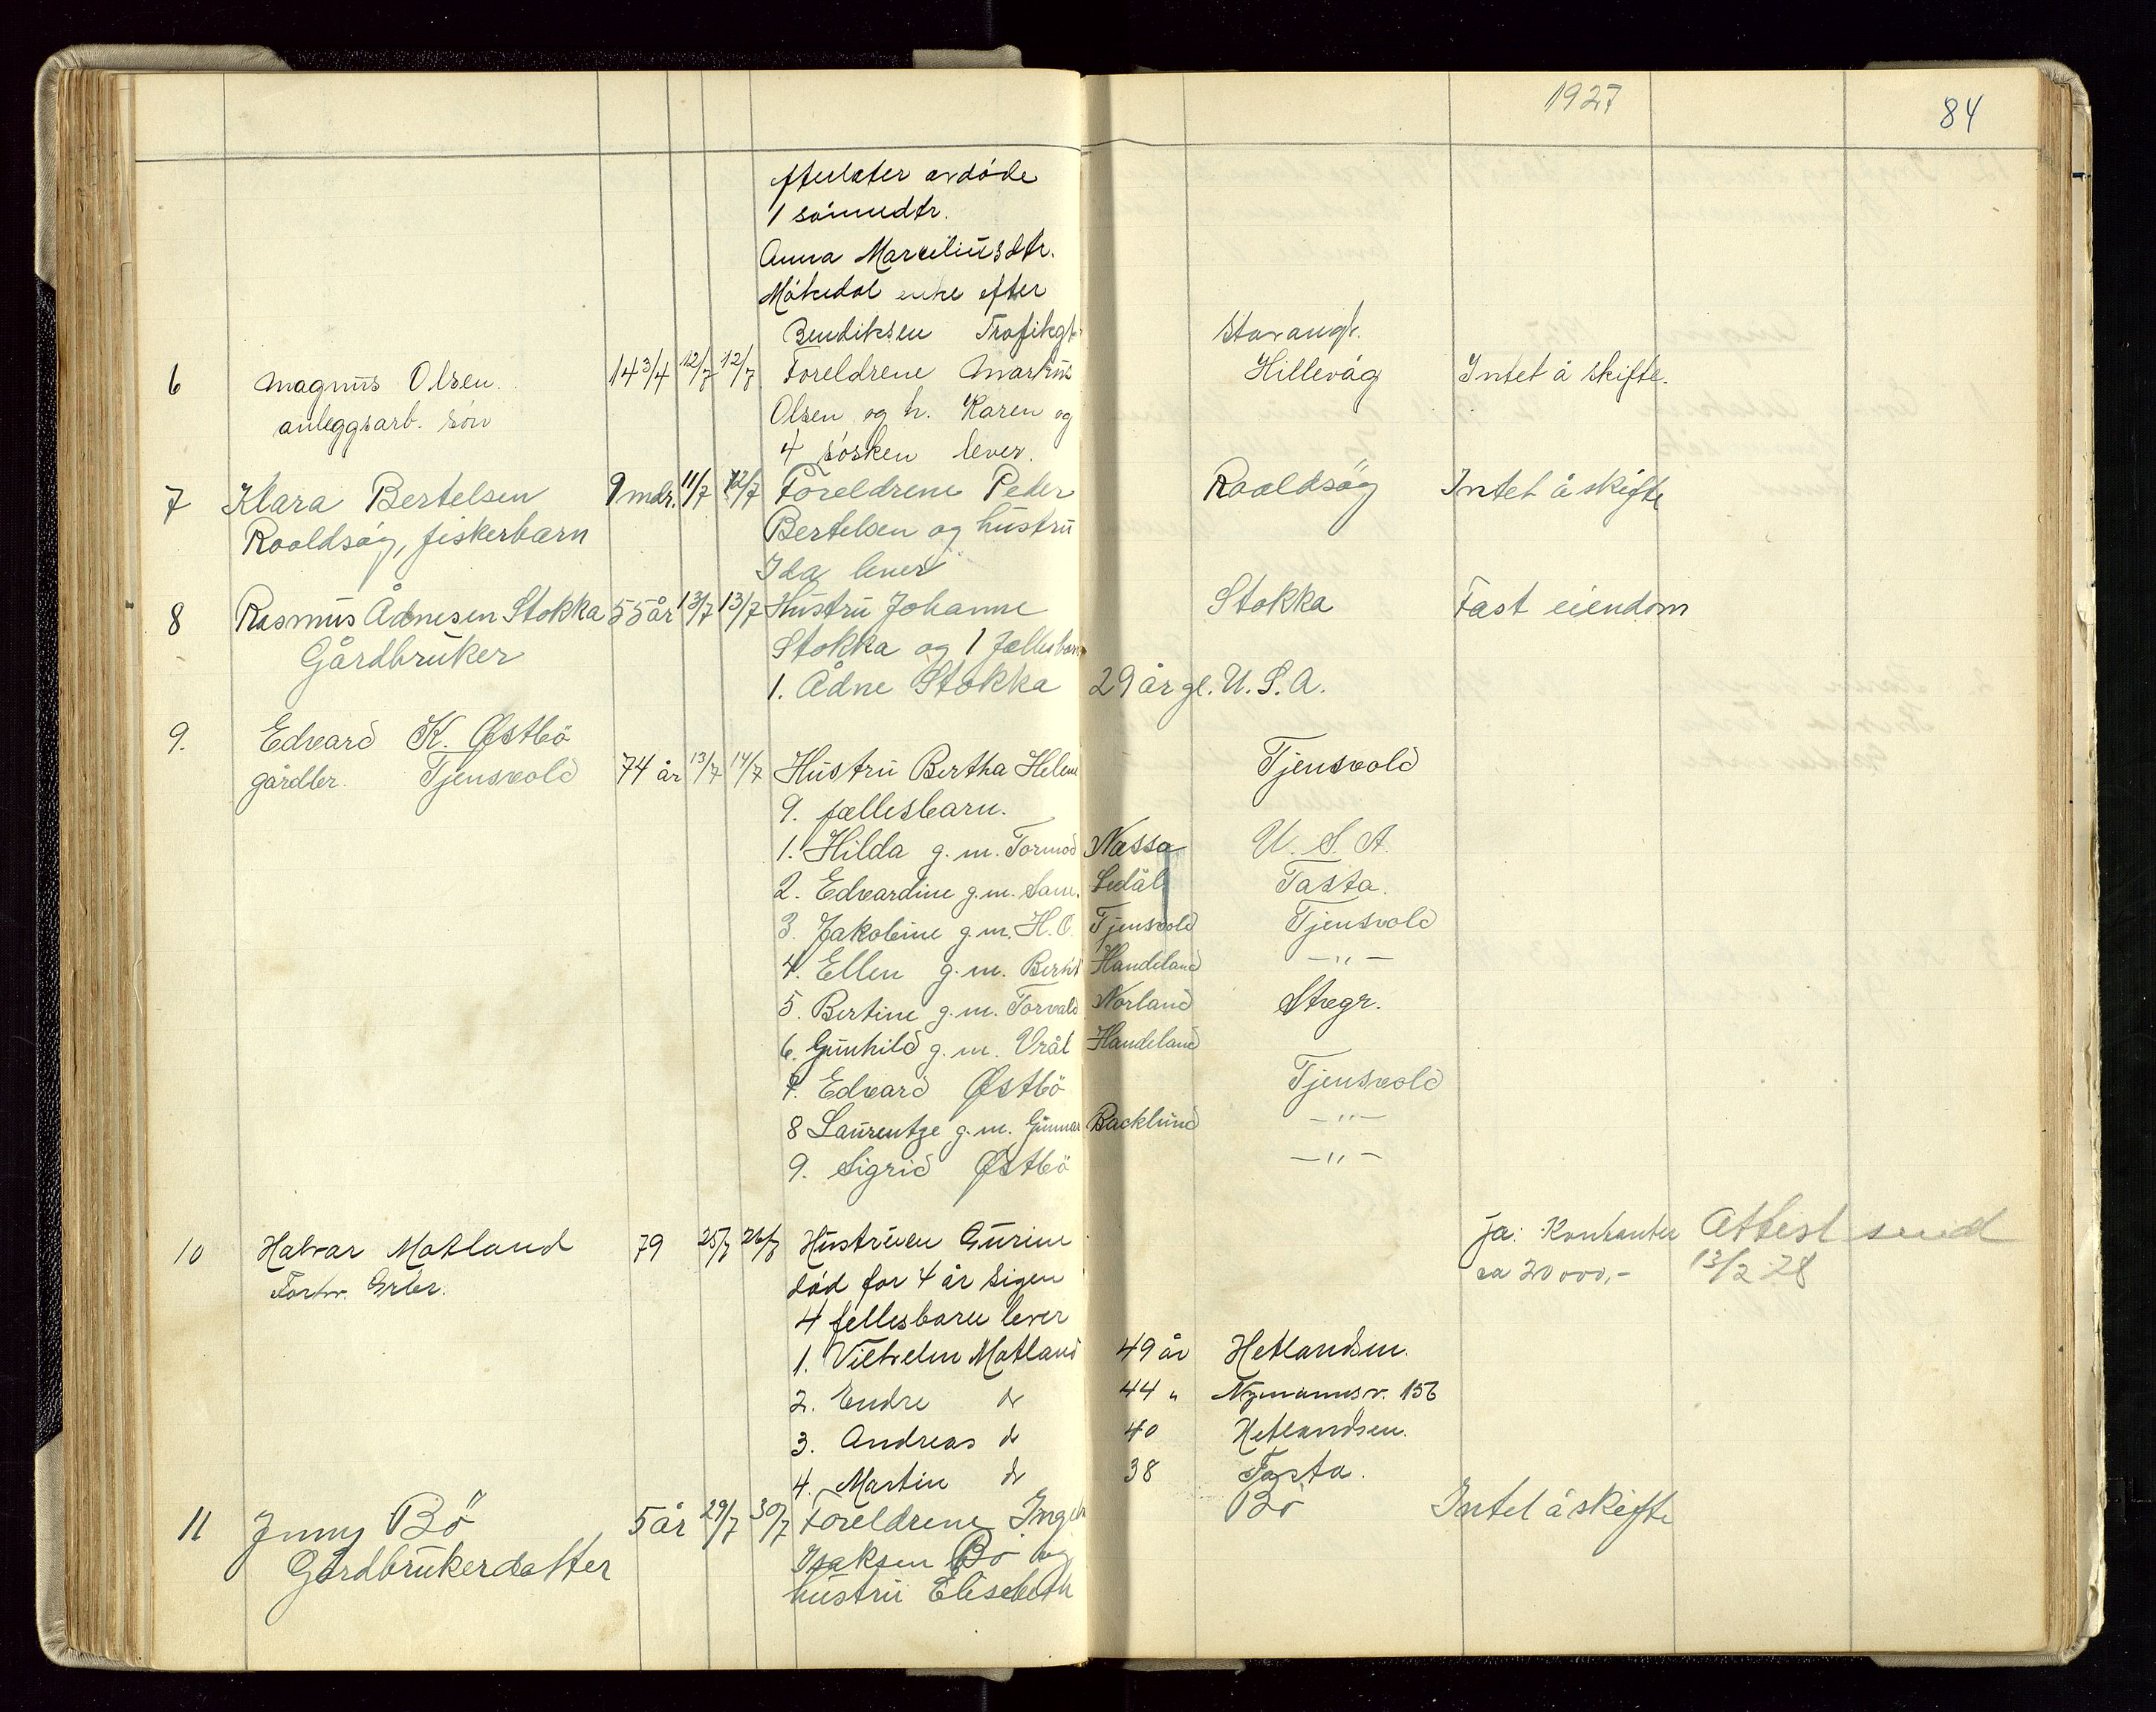 1927
84
efterlater avdøde
1 sønnedtr.
Anna Marciliusdtr.
Måkedal enke efter
Bendiksen Trafikgt. Stavangr.
6 Magnus Olsen 14 3/4 12/7 12/7 Foreldrene Markus Hillevåg Intet å skifte.
anleggsarb. søn Olsen og h. Karen og
4 søsken lever.
7 Klara Bertelsen 9 mdr. 11/7 12/7 Foreldrene Peder Roaldsøy Intet å skifte
Roaldsøy, fiskerbarn Bertelsen og hustru
Ida lever
8 Rasmus Ådnesen Stokka 55 år 13/7 13/7 Hustru Johanne Stokka Fast eiendom
Gårdbruker Stokka og 1 fellesbarn
1. Ådne Stokka 29 år gl. U.S.A.
9. Edvard K. Østbö
gårdbr. Tjensvold 74 år 13/7 14/7 Hustru Bertha Helene Tjensvold
9. fællesbarn.
1. Hilda g.m. Tormod Næssa U.S.A.
2. Edvardine g.m. Sam. Sedäl Tasta.
3. Jakobine g.m. H.O. Tjensvold Tjensvold
4. Ellen g.m. Bernt Handeland —"—
5. Bertine g.m. Torvald Norland Stvgr.
6. Gunhild g.m. Vrål Handeland
7. Edvard Østbö Tjensvold
8 Laurentze g.m. Gunnar Backlund —"—
9. Sigrid Østbö —"—
10 Halvar Matland 79 25/7 26/7 Hustruen Gurine ja: Kontanter Attest send
Forhv. Grbr. død for 4 år sigen ca 20000,- 13/2 28
4 fellesbarn lever
1. Vilhelm Matland 49 år Hetlandsm.
2. Endre do 44 " Nymannsv. 156
3. Andreas do 40 Hetlandsm.
4. Martin do 38 Tasta.
11 Jenny Bö 5 år 29/7 30/7 Foreldrene Bö Intet å skifte
Gårdbrukerdatter Isaksen Bö og
hustru Elisebeth